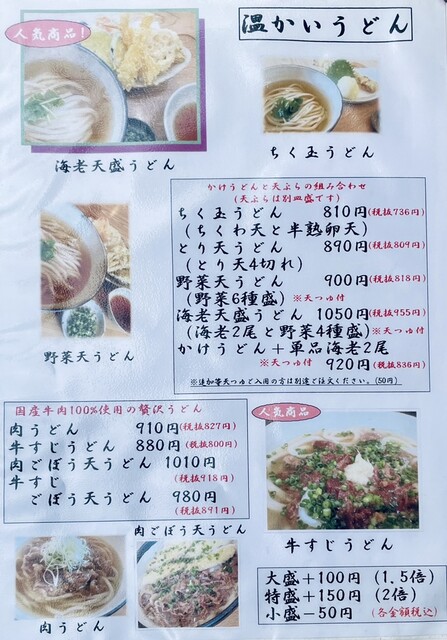 人気商品！
温かいうどん
海老天盛うどん
ちく玉うどん
かけうどんと天ぷらの組み合わせ
(天ぷらは別皿盛です)
ちく玉うどん 810円(税抜736円)
(ちくわ天と半熟卵天)
とり天うどん 890円(税抜809円)
(とり天4切れ)
野菜天うどん 900円(税抜818円)
(野菜6種盛) ※天つゆ付
海老天盛うどん 1050円(税抜955円)
(海老2尾と野菜4種盛)※天つゆ付
かけうどん＋単品海老2尾
※天つゆ付 920円(税抜836円)
※追加等天つゆご入用の方は別途ご注文ください。(50円)
野菜天うどん
国産牛肉100%使用の贅沢うどん
肉うどん 910円(税抜827円)
牛すじうどん 880円(税抜800円)
肉ごぼう天うどん 1010円
(税抜918円)
牛すじ
ごぼう天うどん 980円
(税抜891円)
人気商品
牛すじうどん
肉ごぼう天うどん
肉うどん
大盛＋100円 (1.5倍)
特盛＋150円 (2倍)
小盛－50円 (各金額税込)